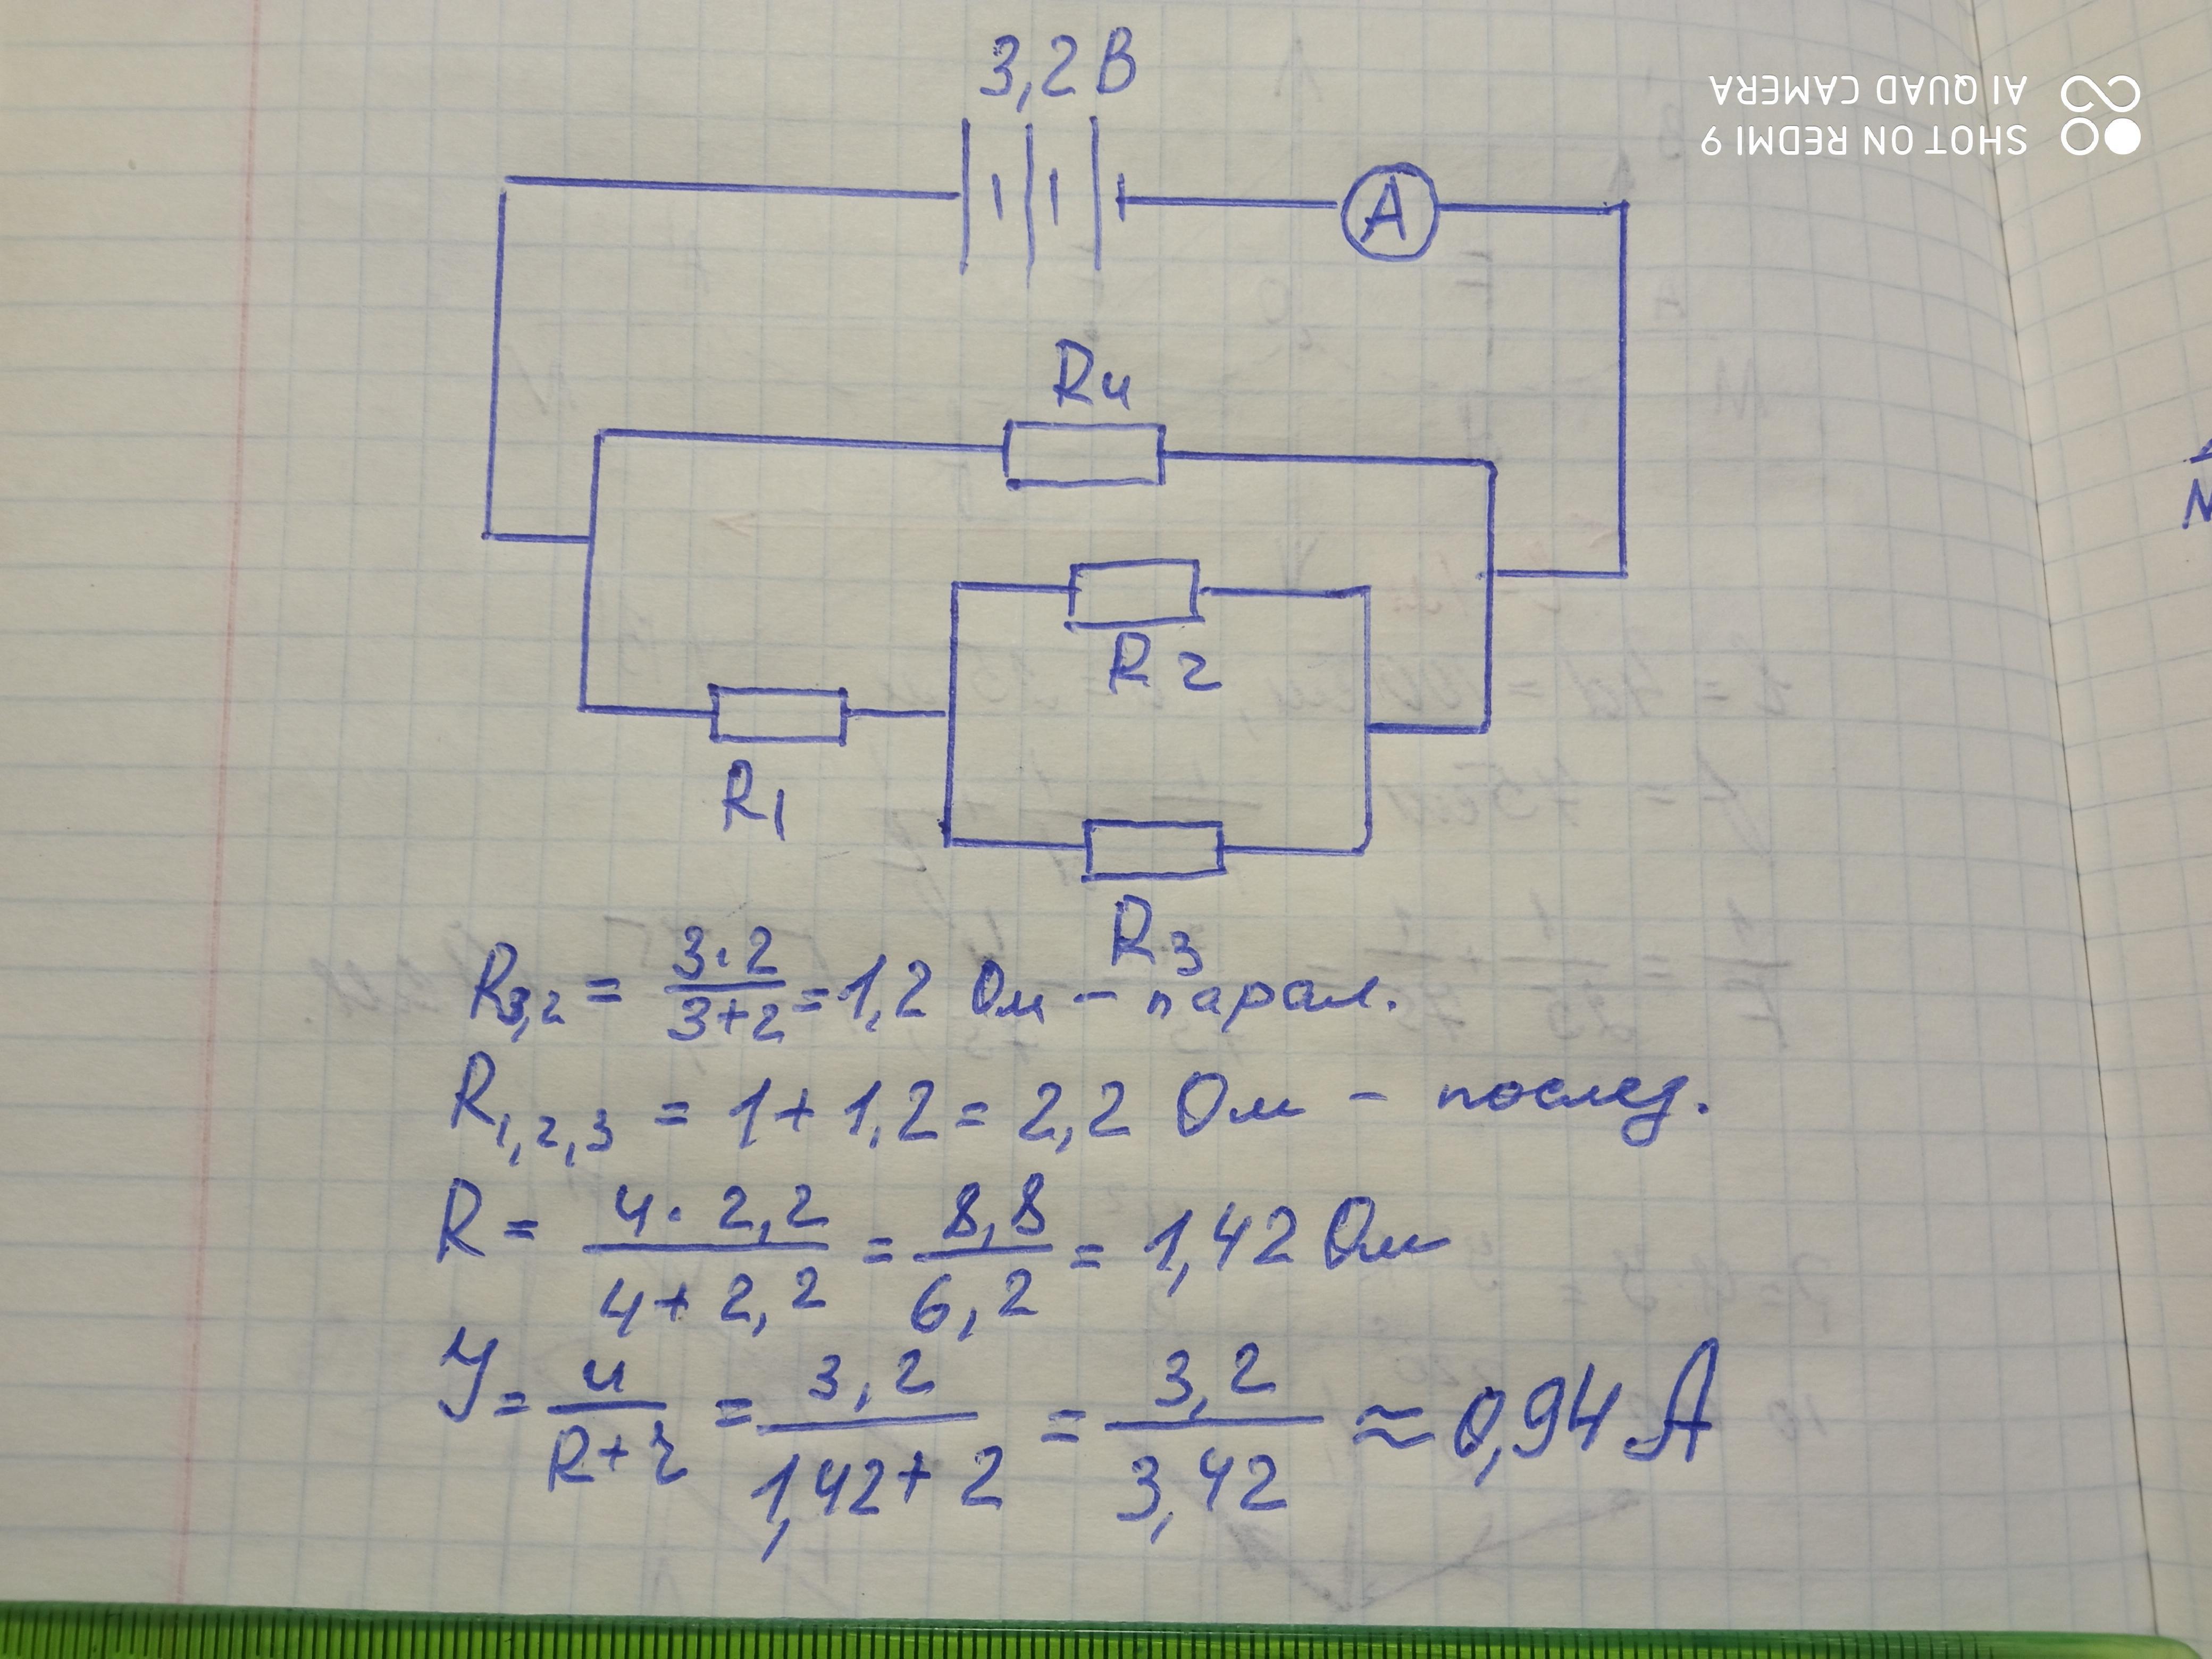 3,2 В
SHOT ON REDMI 9
AI QUAD CAMERA
A
R4
R2
R1
R3
R3,2 = 3·2/3+2 = 1,2 Ом - парал.
R1,2,3 = 1 + 1,2 = 2,2 Ом - послед.
R = 4·2,2/4+2,2 = 8,8/6,2 = 1,42 Ом
I = U/R+r = 3,2/1,42+2 = 3,2/3,42 ≈ 0,94 A